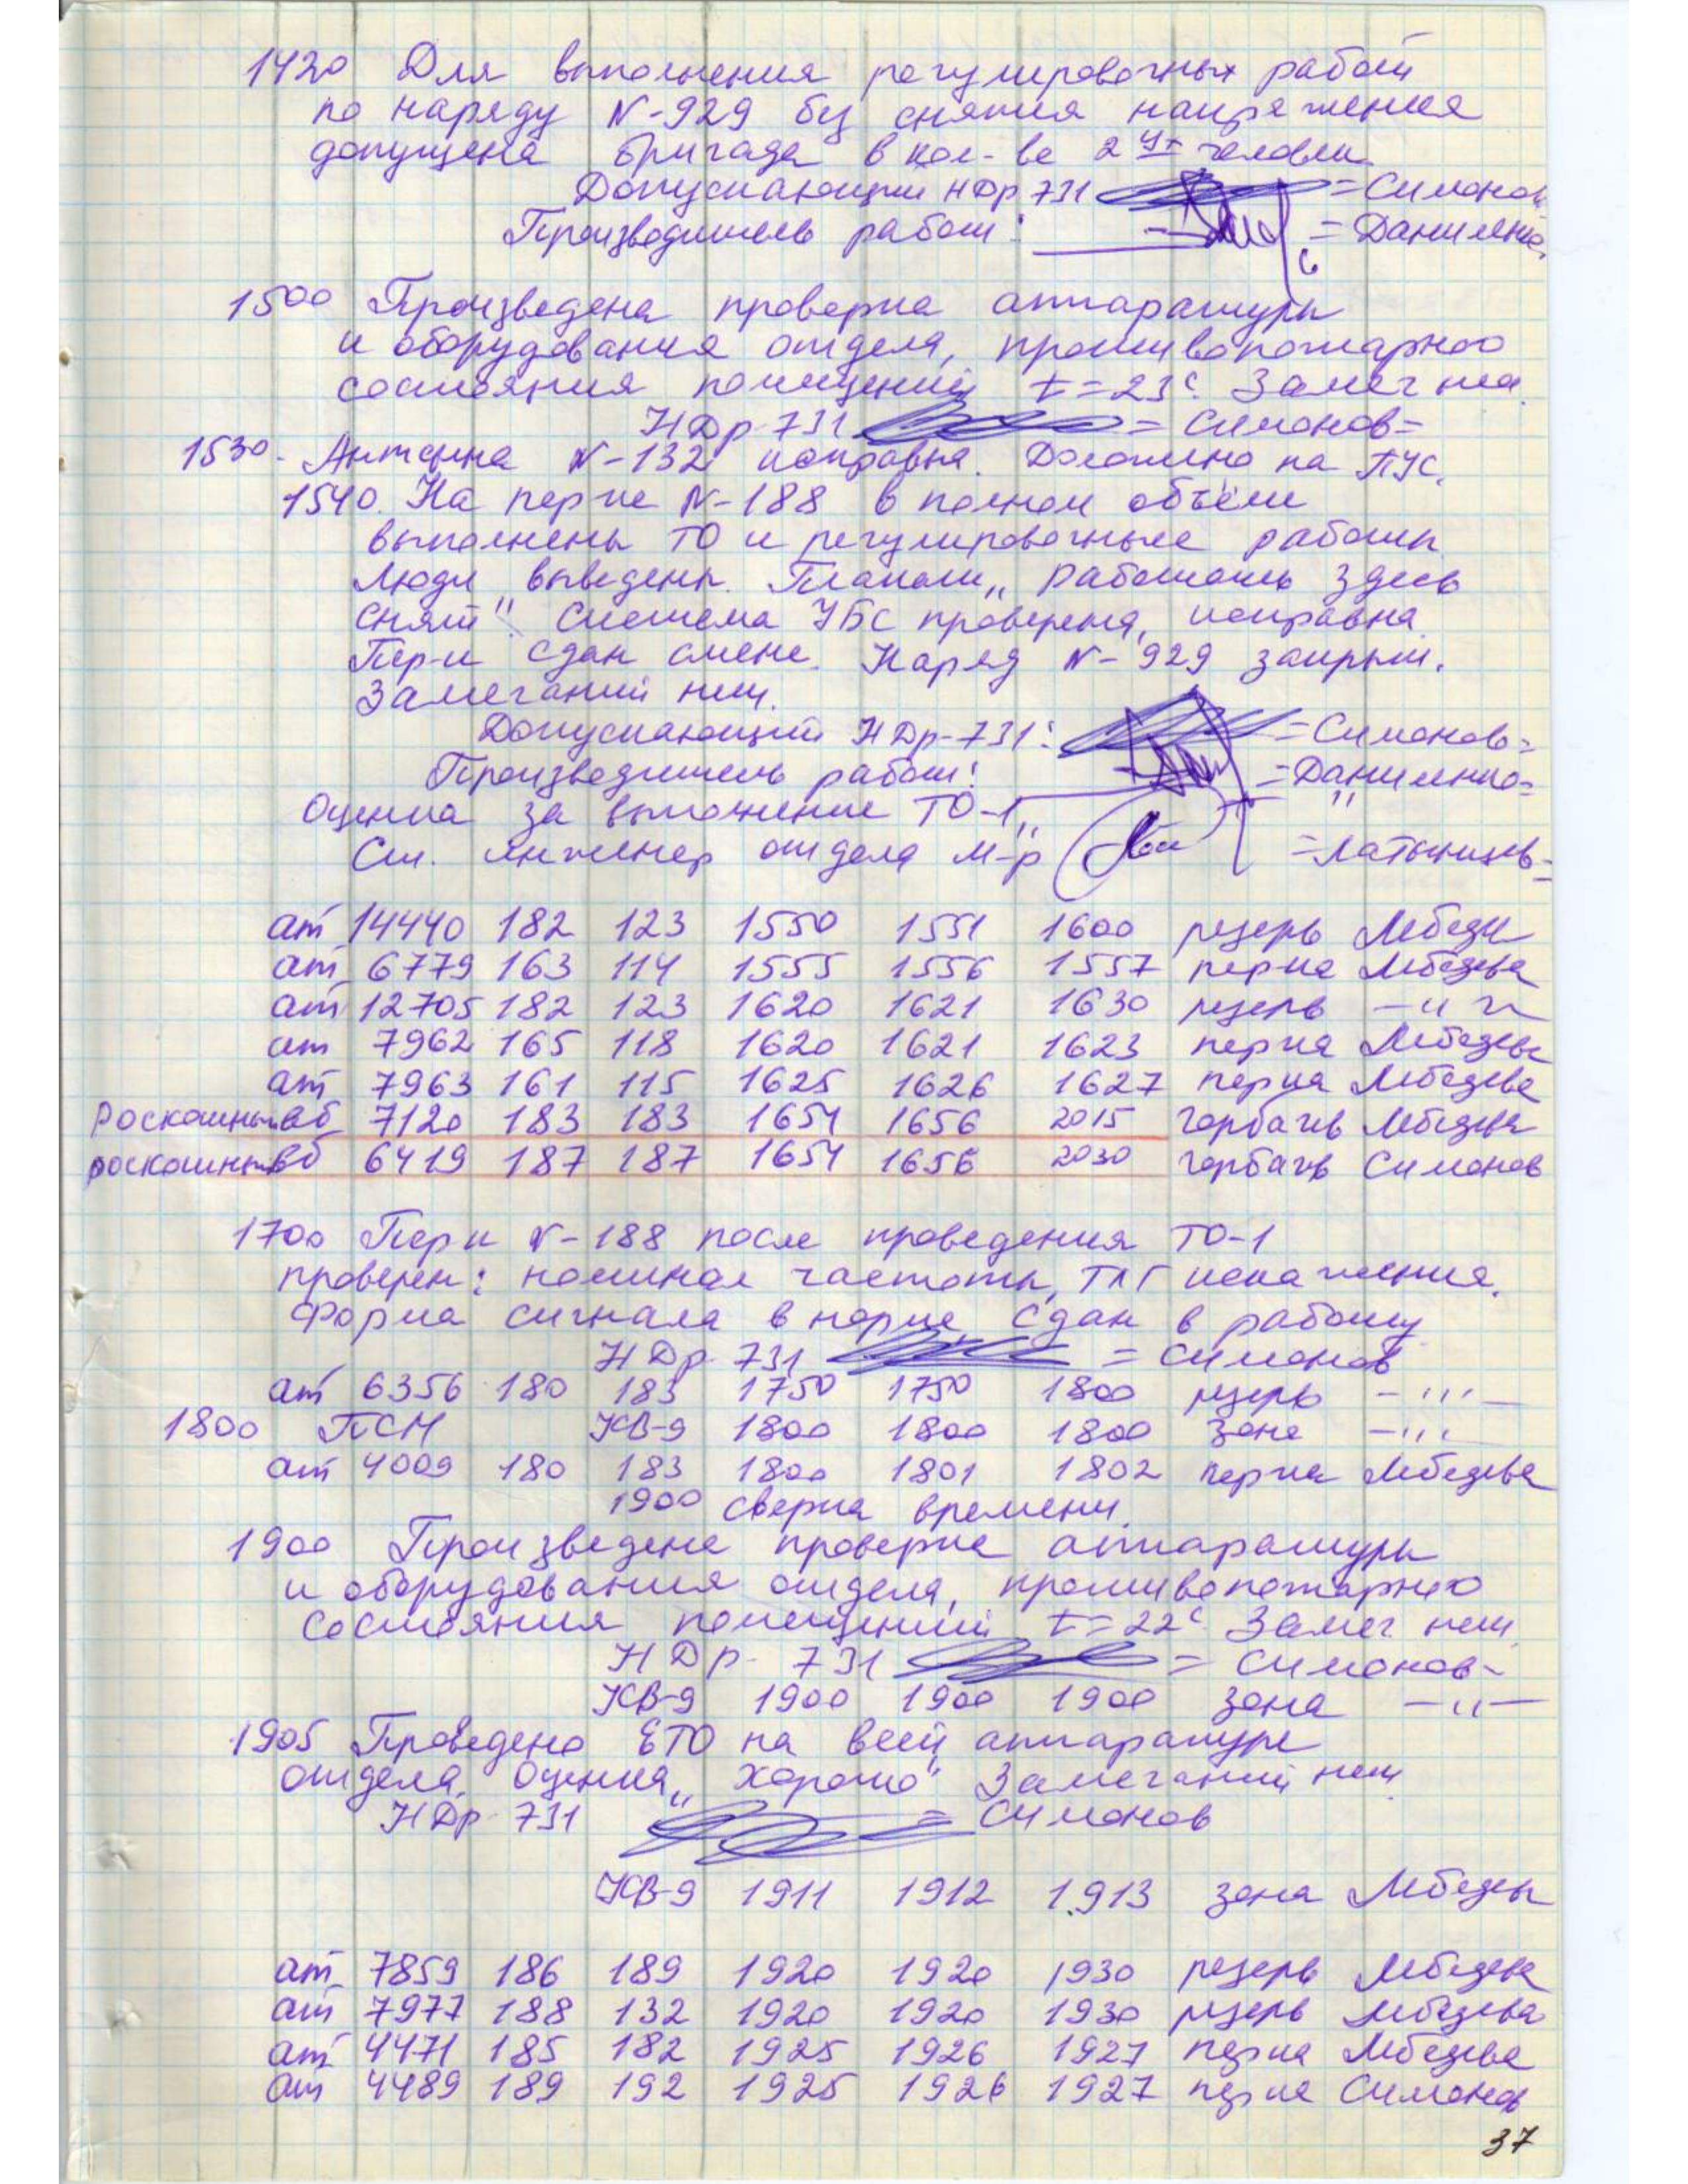 1420 Для выполнения регулировочных работ
по наряду N-929 без снятия напряжения
допущена бригада в кол-ве 2 ух человек
Допускающий НДр 731 = Симонов
Производитель работ: = Даниленко
1500 Произведена проверка аппаратуры
и оборудования отдела, противопожарного
состояния помещений t=23°С. Замеч нет.
НДр 731 = Симонов=
1530. Антенна N-132 исправна. Доложено на ПУС.
1540. На пер-ке N-188 в полном объёме
выполнены ТО и регулировочные работы.
Люди выведены. Плакат „Работать здесь
снят". Система УБС проверена, исправна.
Пер-к сдан смене. Наряд N-929 закрыт.
Замечаний нет.
Допускающий НДр-731: =Симонов=
Производитель работ: =Даниленко=
Оценка за выполнение ТО-1 „ "
Ст. инженер отдела м-р =Латынцев=
ат 14440 182 123 1550 1551 1600 резерв Лебедев
ат 6779 163 114 1555 1556 1557 перка Лебедева
ат 12705 182 123 1620 1621 1630 резерв —"—
ат 7962 165 118 1620 1621 1623 перка Лебедева
ат 7963 161 115 1625 1626 1627 перка Лебедева
Роскошный вб 7120 183 183 1654 1656 2015 Горбачев Лебедева
роскошный вб 6419 187 187 1654 1656 2030 Горбачев Симонов
1700 Пер-к N-188 после проведения ТО-1
проверен: номинал частоты, ТЛГ искажения.
Форма сигнала в норме. Сдан в работу
НДр 731 = Симонов
ат 6356 180 183 1750 1750 1800 резерв —"—
1800 ПСМ КВ-9 1800 1800 1800 зона —"—
ат 4009 180 183 1800 1801 1802 перка Лебедева
1900 сверка времени.
1900 Произведена проверка аппаратуры
и оборудования отдела, противопожарного
состояния помещений t=22°С. Замеч. нет.
НДр- 731 = Симонов-
КВ-9 1900 1900 1900 зона —"—
1905 Проведено ЕТО на всей аппаратуре
отдела. Оценка „хорошо" Замечаний нет
НДр 731 = Симонов
КВ-9 1911 1912 1913 зона Лебедев
ат 7859 186 189 1920 1920 1930 резерв Лебедева
ат 7977 188 132 1920 1920 1930 резерв Лебедева
ат 4471 185 182 1925 1926 1927 перка Лебедева
ат 4489 189 192 1925 1926 1927 перка Симонов
37